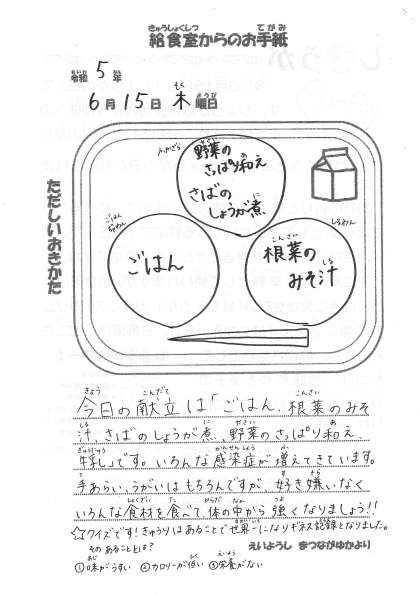 給食室からのお手紙
令和 5年
6月15日 木曜日
ただしいおきかた
野菜の
さっぱり和え
さばの
しょうが煮
ごはん
根菜の
みそ汁
今日の献立は「ごはん、根菜のみそ
汁、さばのしょうが煮、野菜のさっぱり和え、
牛乳」です。いろんな感染症が増えてきています。
手あらい、うがいはもちろんですが、好き嫌いなく
いろんな食材を食べて、体の中から強くなりましょう!!
☆クイズです!きゅうりはあることで世界一になりギネス記録となりました。
そのあることとは?
①味がうすい ②カロリーが低い ③栄養がない
えいようし まつながゆかより